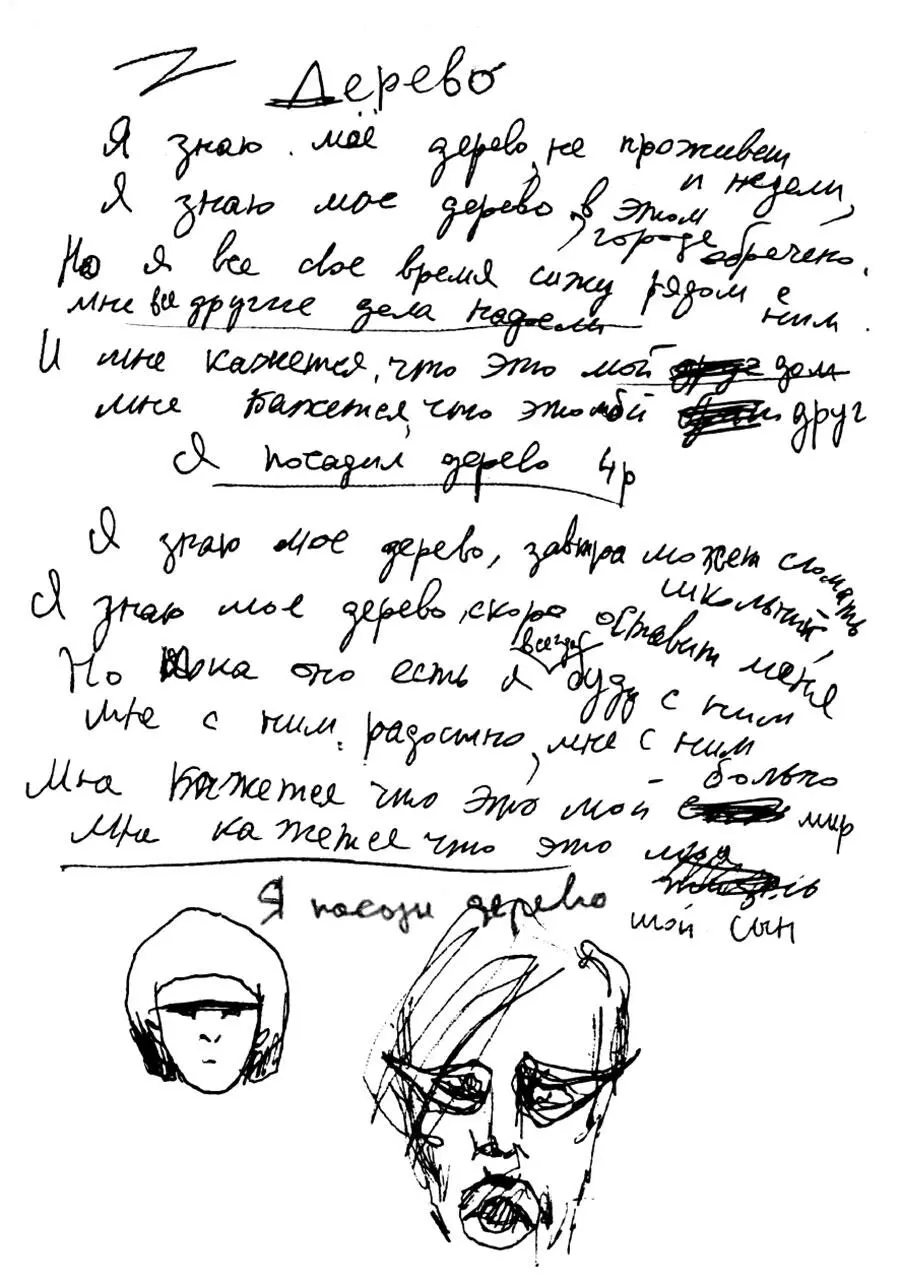 Дерево
Я знаю моё дерево, не проживет
и недели,
Я знаю мое дерево, в этом
городе обречено.
Но я все свое время сижу рядом с
ним.
мне все другие дела надоели
И мне кажется, что это мой дом
мне кажется, что это мой друг
Я посадил дерево 4р
Я знаю мое дерево, завтра может сломать
школьник,
Я знаю мое дерево, скоро оставит меня
Но пока оно есть я всегда буду с ним
мне с ним радостно, мне с ним
больно
Мне кажется что это мой мир
Мне кажется что это
мой сын
Я посади дерево